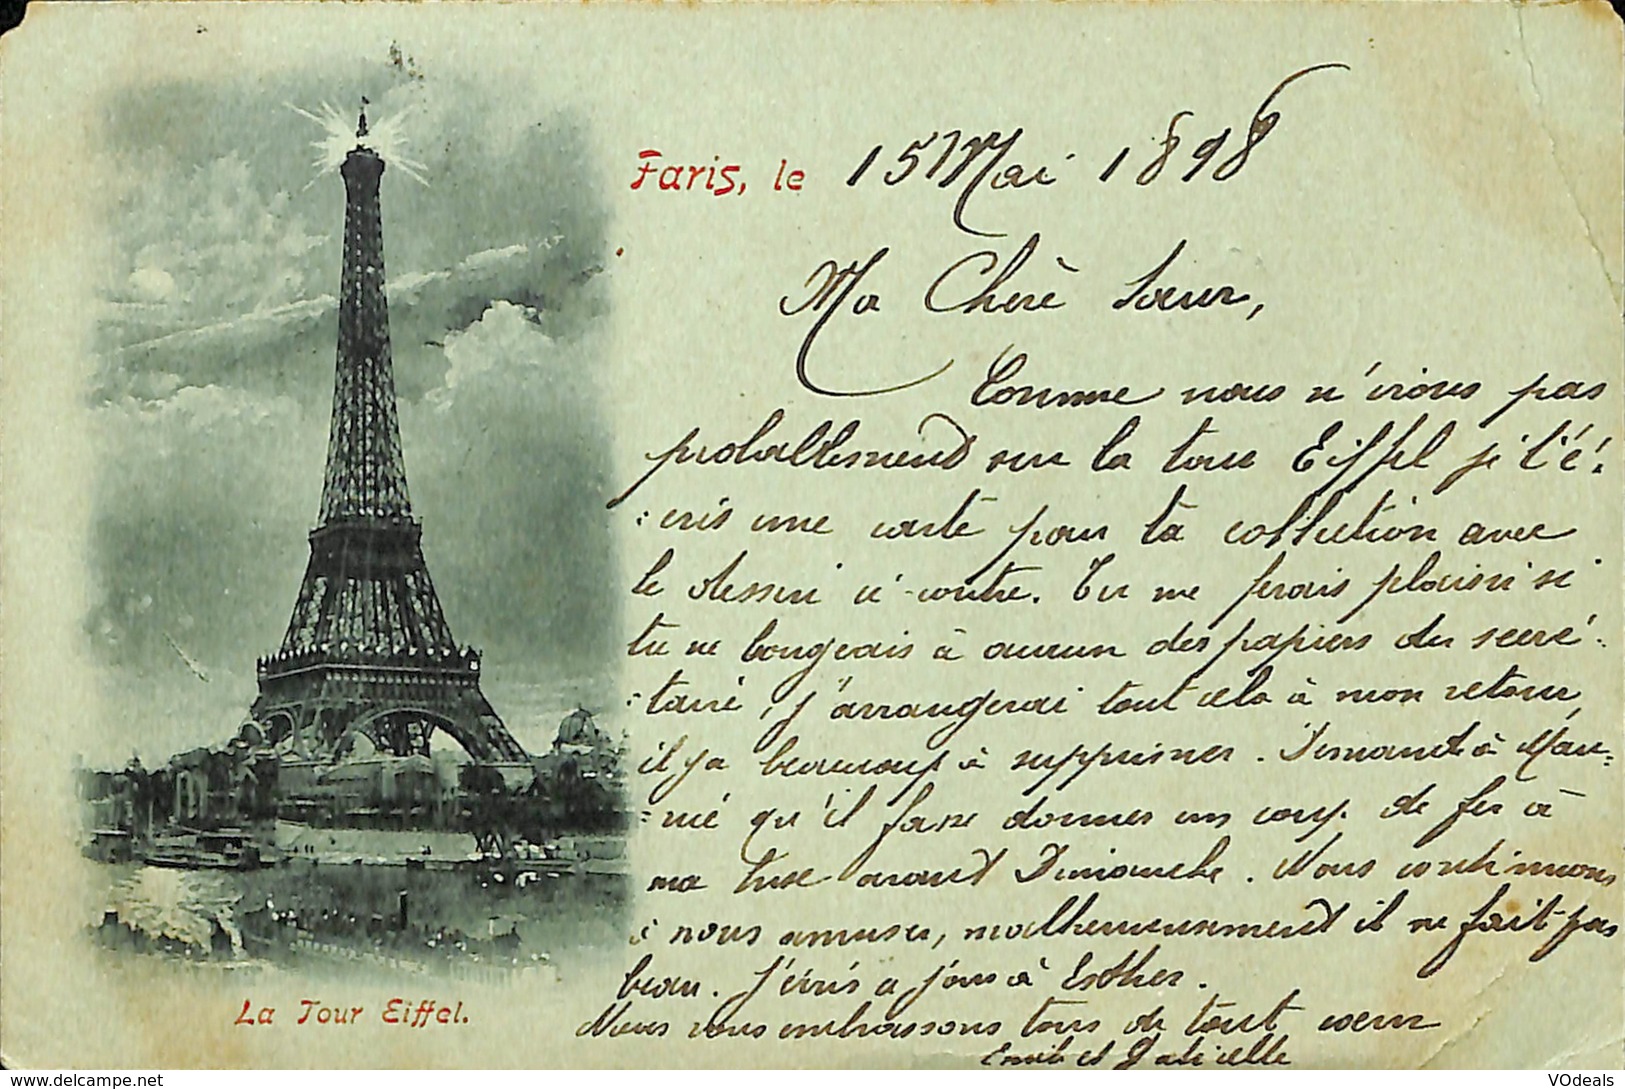 Paris, le 15 Mai 1898
Ma Chère Sœur,
Comme nous n'irons pas
probablement sur la tour Eiffel je t'é-
:cris une carte pour ta collection avec
le dessin ci-contre. Tu me ferais plaisir si
tu ne bougeais à aucun des papiers du secré-
:taire, j'arrangerai tout cela à mon retour,
il y a beaucoup à supprimer. Demande à
qu'il fasse donner un coup de fer à
ma avant Dimanche. Nous continuons
à nous amuser, malheureusement il ne fait pas
beau. J'écris à jour à Esther.
Nous vous embrassons tous de tout cœur
Emile et Gabrielle
La Tour Eiffel.
© VOdeals
www.delcampe.net
VOdeals